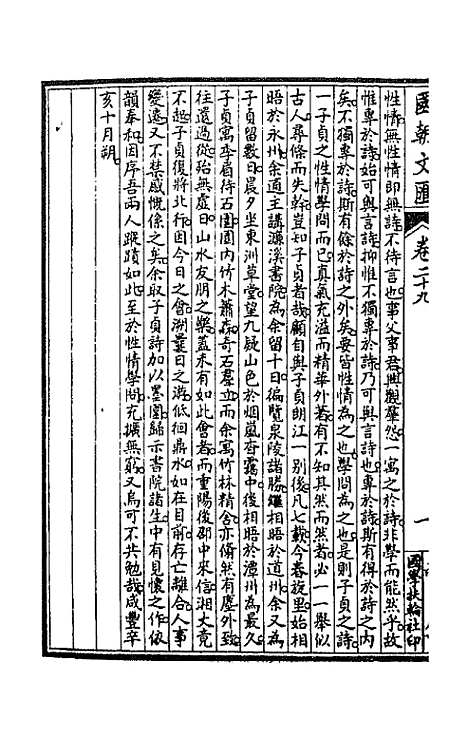 國朝文匯 卷二十九 一 國學扶輪社印
性情無性情即無詩不待言也事父事君興觀羣怨一寓之於詩非學而能然乎故
惟專於詩始可與言詩抑惟不獨專於詩乃可與言詩也專於詩斯有得於詩之内
矣不獨專於詩斯有餘於詩之外矣要皆性情為之也學問為之也是則子貞之詩
一子貞之性情學問而已真氣充溢而精華外著有不知其然而然者必一一舉似
古人尋條而失幹豈知子貞者哉顧自與子貞朗江一別後凡七載今春旋里始相
晤於永州余適主講濂溪書院為余留十日徧覽泉陵諸勝繼相晤於道州余又為
子貞留數日晨夕坐東洲草堂望九疑山色於烟嵐杳靄中後相晤於澧州為最久
子貞寓李眉待石園園内竹木蕭森奇石羣立而余寓竹林精舍亦翛然有塵外致
往還過從殆無虚日山水友朋之樂蓋未有如此會者而重陽後邵中來信湘大竟
不起子貞復將北行因今日之會溯曩日之游低徊鼎水如在目前存亡離合人事
變遷又不禁感慨係之矣余取子貞詩加以墨圈歸示書院諸生中有見懷之作依
韻奉和因序吾兩人蹤蹟如此至於性情學問充擴無窮又烏可不共勉哉咸豐辛
亥十月朔